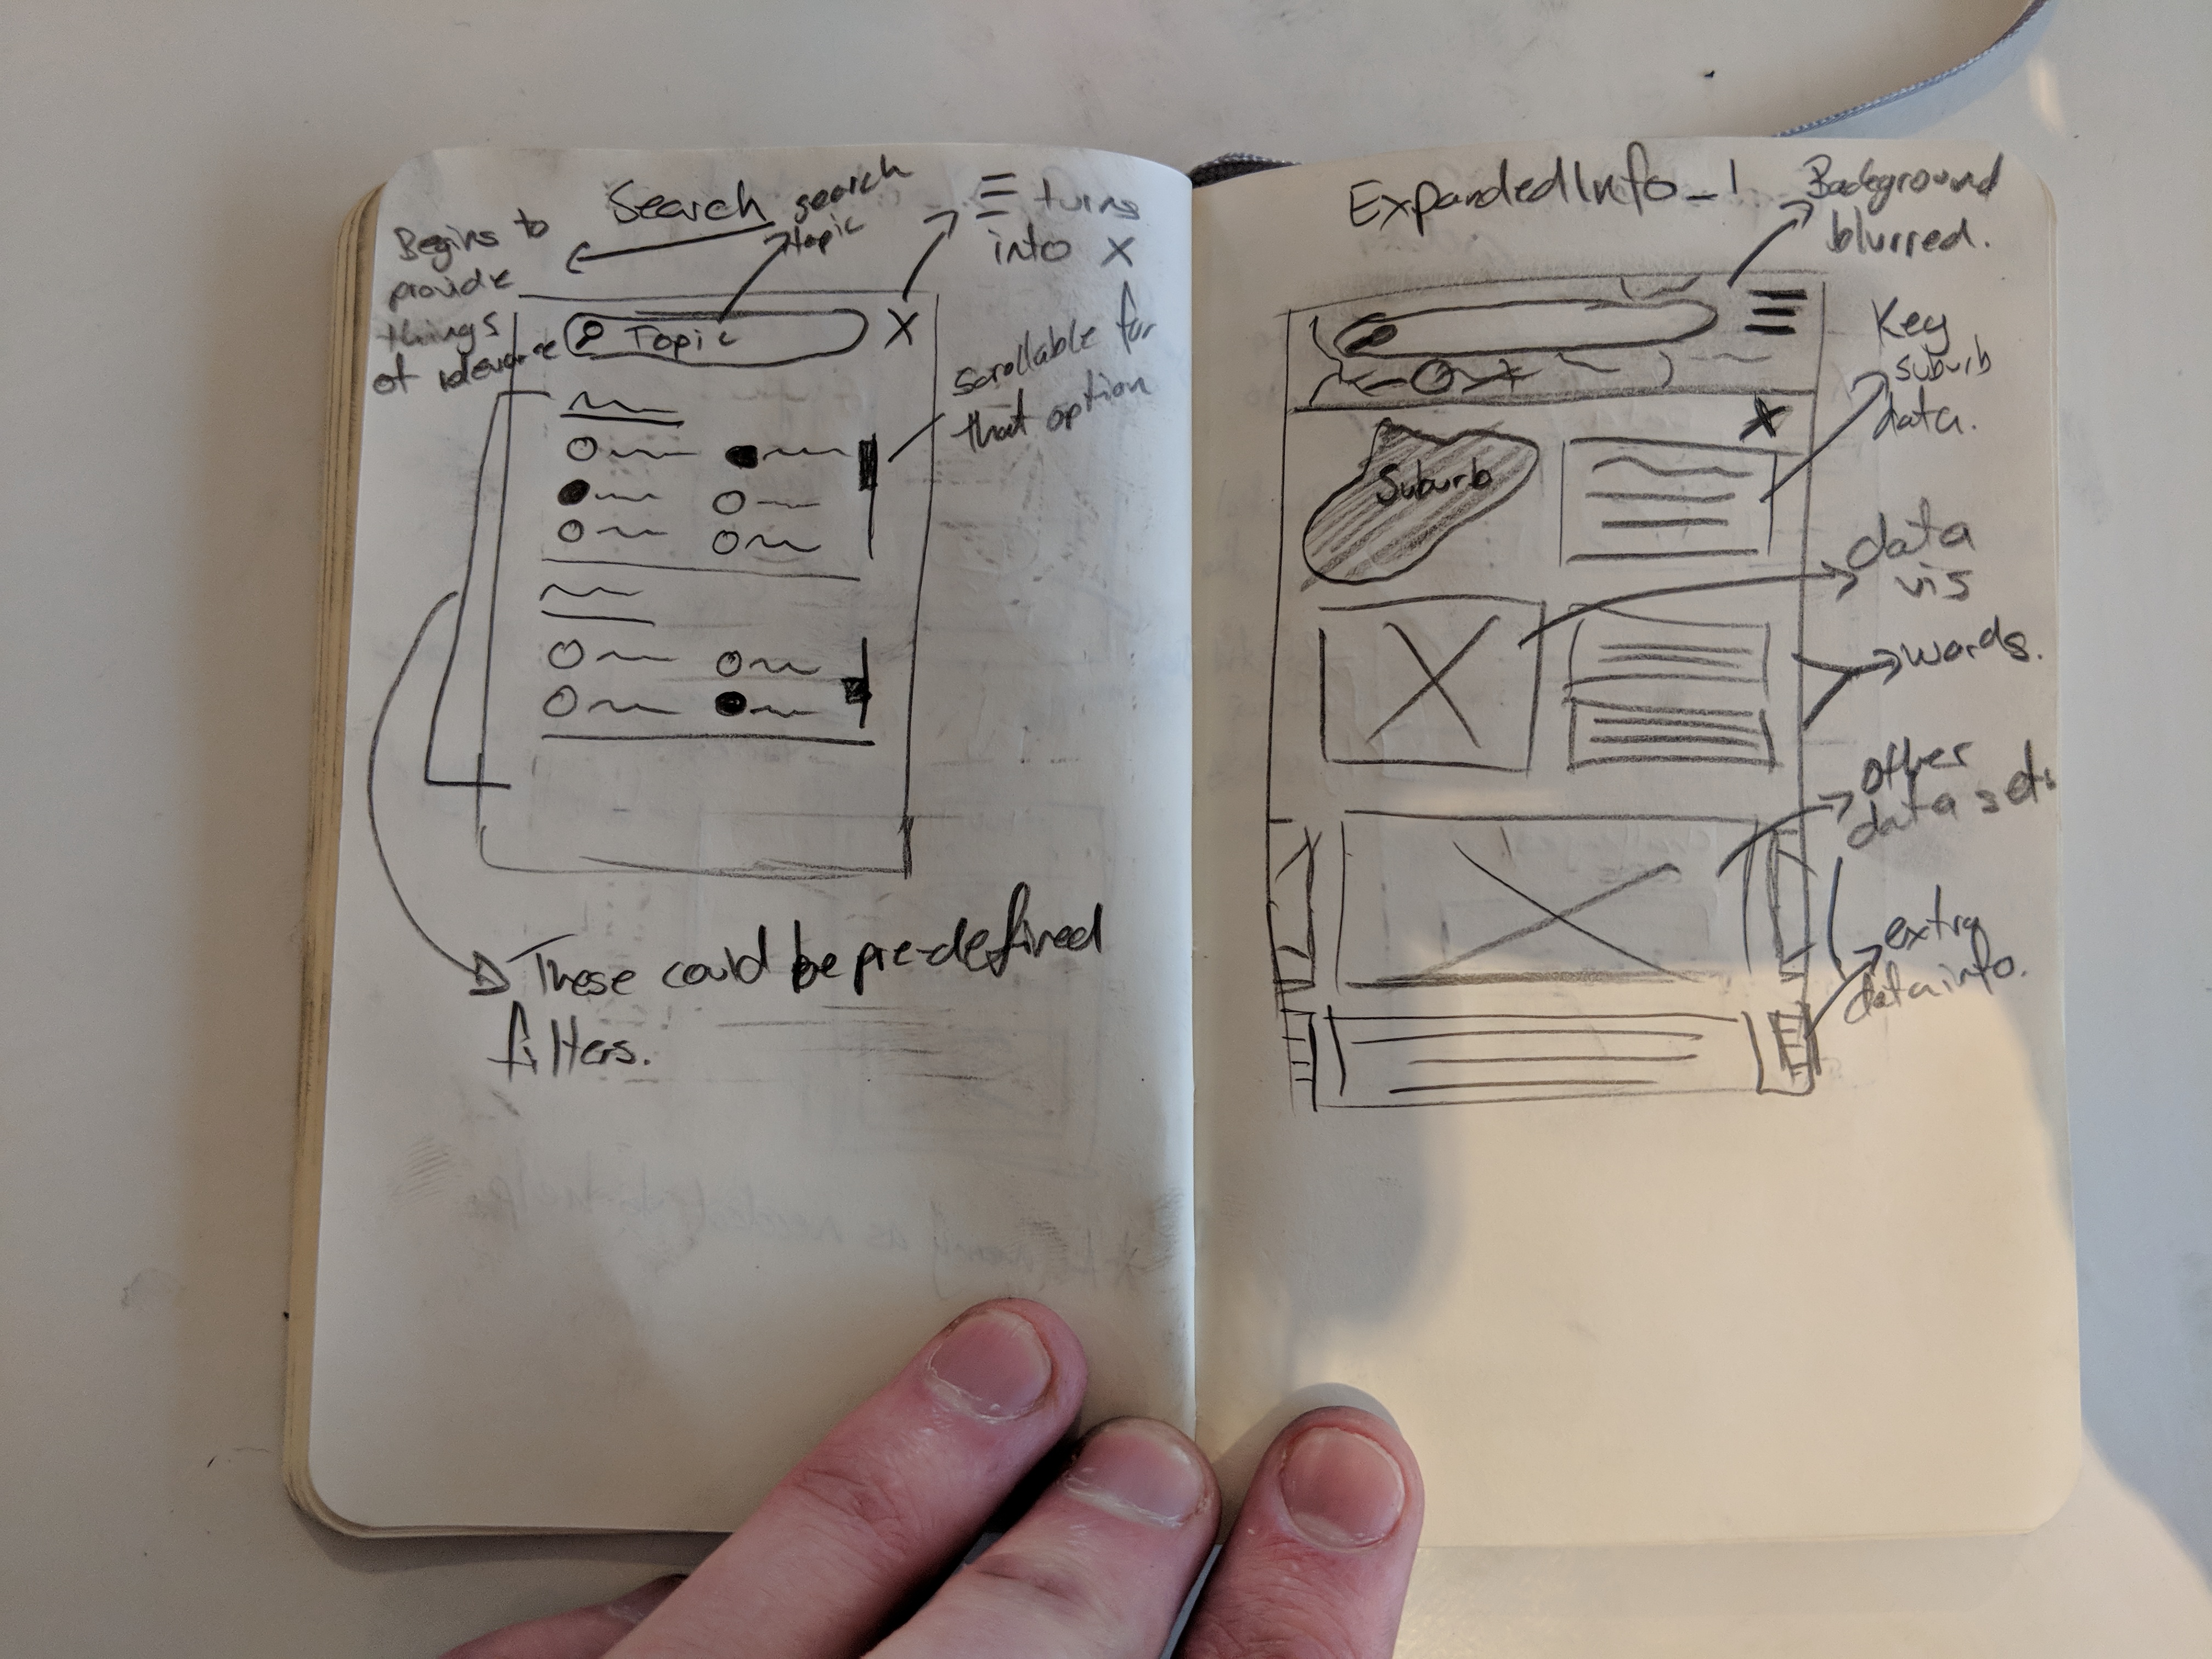 Search
search
topic
Begins to
provide
things
of relevance
☰ turns
into X
Topic
X
scrollable for
that option
These could be pre-defined
filters.
ExpandedInfo_1
Background
blurred.
Key
suburb
data.
X
Suburb
data
vis
words.
other
data sets
extra
data info.